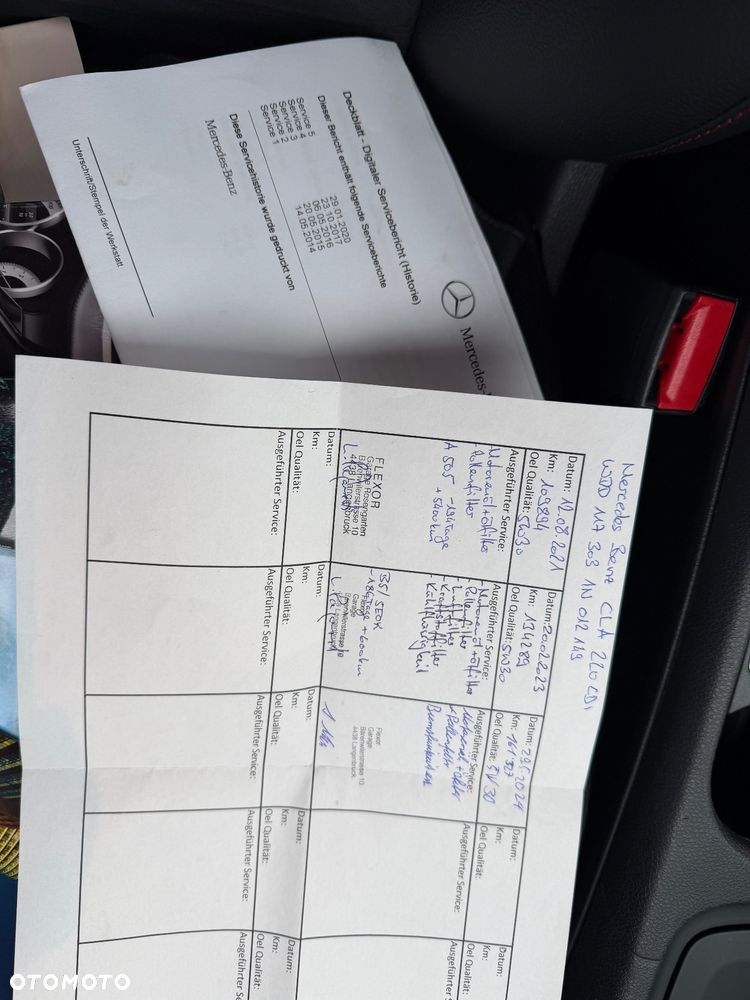 Mercedes-Benz
Deckblatt - Digitaler Servicebericht (Historie)
Dieser Bericht enthält folgende Serviceberichte
Service 5 29.01.2020
Service 4 23.10.2017
Service 3 06.05.2016
Service 2 20.05.2015
Service 1 14.05.2014
Diese Servicehistorie wurde gedruckt von
Mercedes-Benz
Unterschrift/Stempel der Werkstatt
Mercedes Benz CLA 220 CDI
WDD 117 303 1N 012 149
Datum: 12.08.2021
Km: 109894
Oel Qualität: 5W30
Ausgeführter Service:
- Motorenöl + ölfilter
- Pollenfilter
A 505 -194 tage
+ 5400km
FLEXOR
Garage Rosengarten
Bärenwilerstrasse 10
4438 Langenbruck
Datum: 20.02.2023
Km: 134289
Oel Qualität: 5W30
Ausgeführter Service:
- Motorenöl + ölfilter
- Pollenfilter
- Luftfilter
- Kraftstoffilter
Kühlflüssigkeit
B5/5EOK
-186 tage + 600km
Flexor
Garage
Bärenwilerstrasse 10
4438 Langenbruck
Datum: 29.5.2024
Km: 161 307
Oel Qualität: 5W30
Ausgeführter Service:
Motorenöl + ölfilter
+ Pollenfilter
Flexor
Garage
Bärenwilerstrasse 10
4438 Langenbruck
Datum:
Km:
Oel Qualität:
Ausgeführter Service:
Datum:
Km:
Oel Qualität:
Ausgeführter Service:
Datum:
Km:
Oel Qualität:
Ausgeführter Service:
Datum:
Km:
Oel Qualität:
Ausgeführter Service:
Datum:
Km:
Oel Qualität:
Ausgeführter Service:
Datum:
Km:
Oel Qualität:
Ausgeführter Service:
Datum:
Km:
Oel Qualität:
Ausgeführter Service:
OTOMOTO